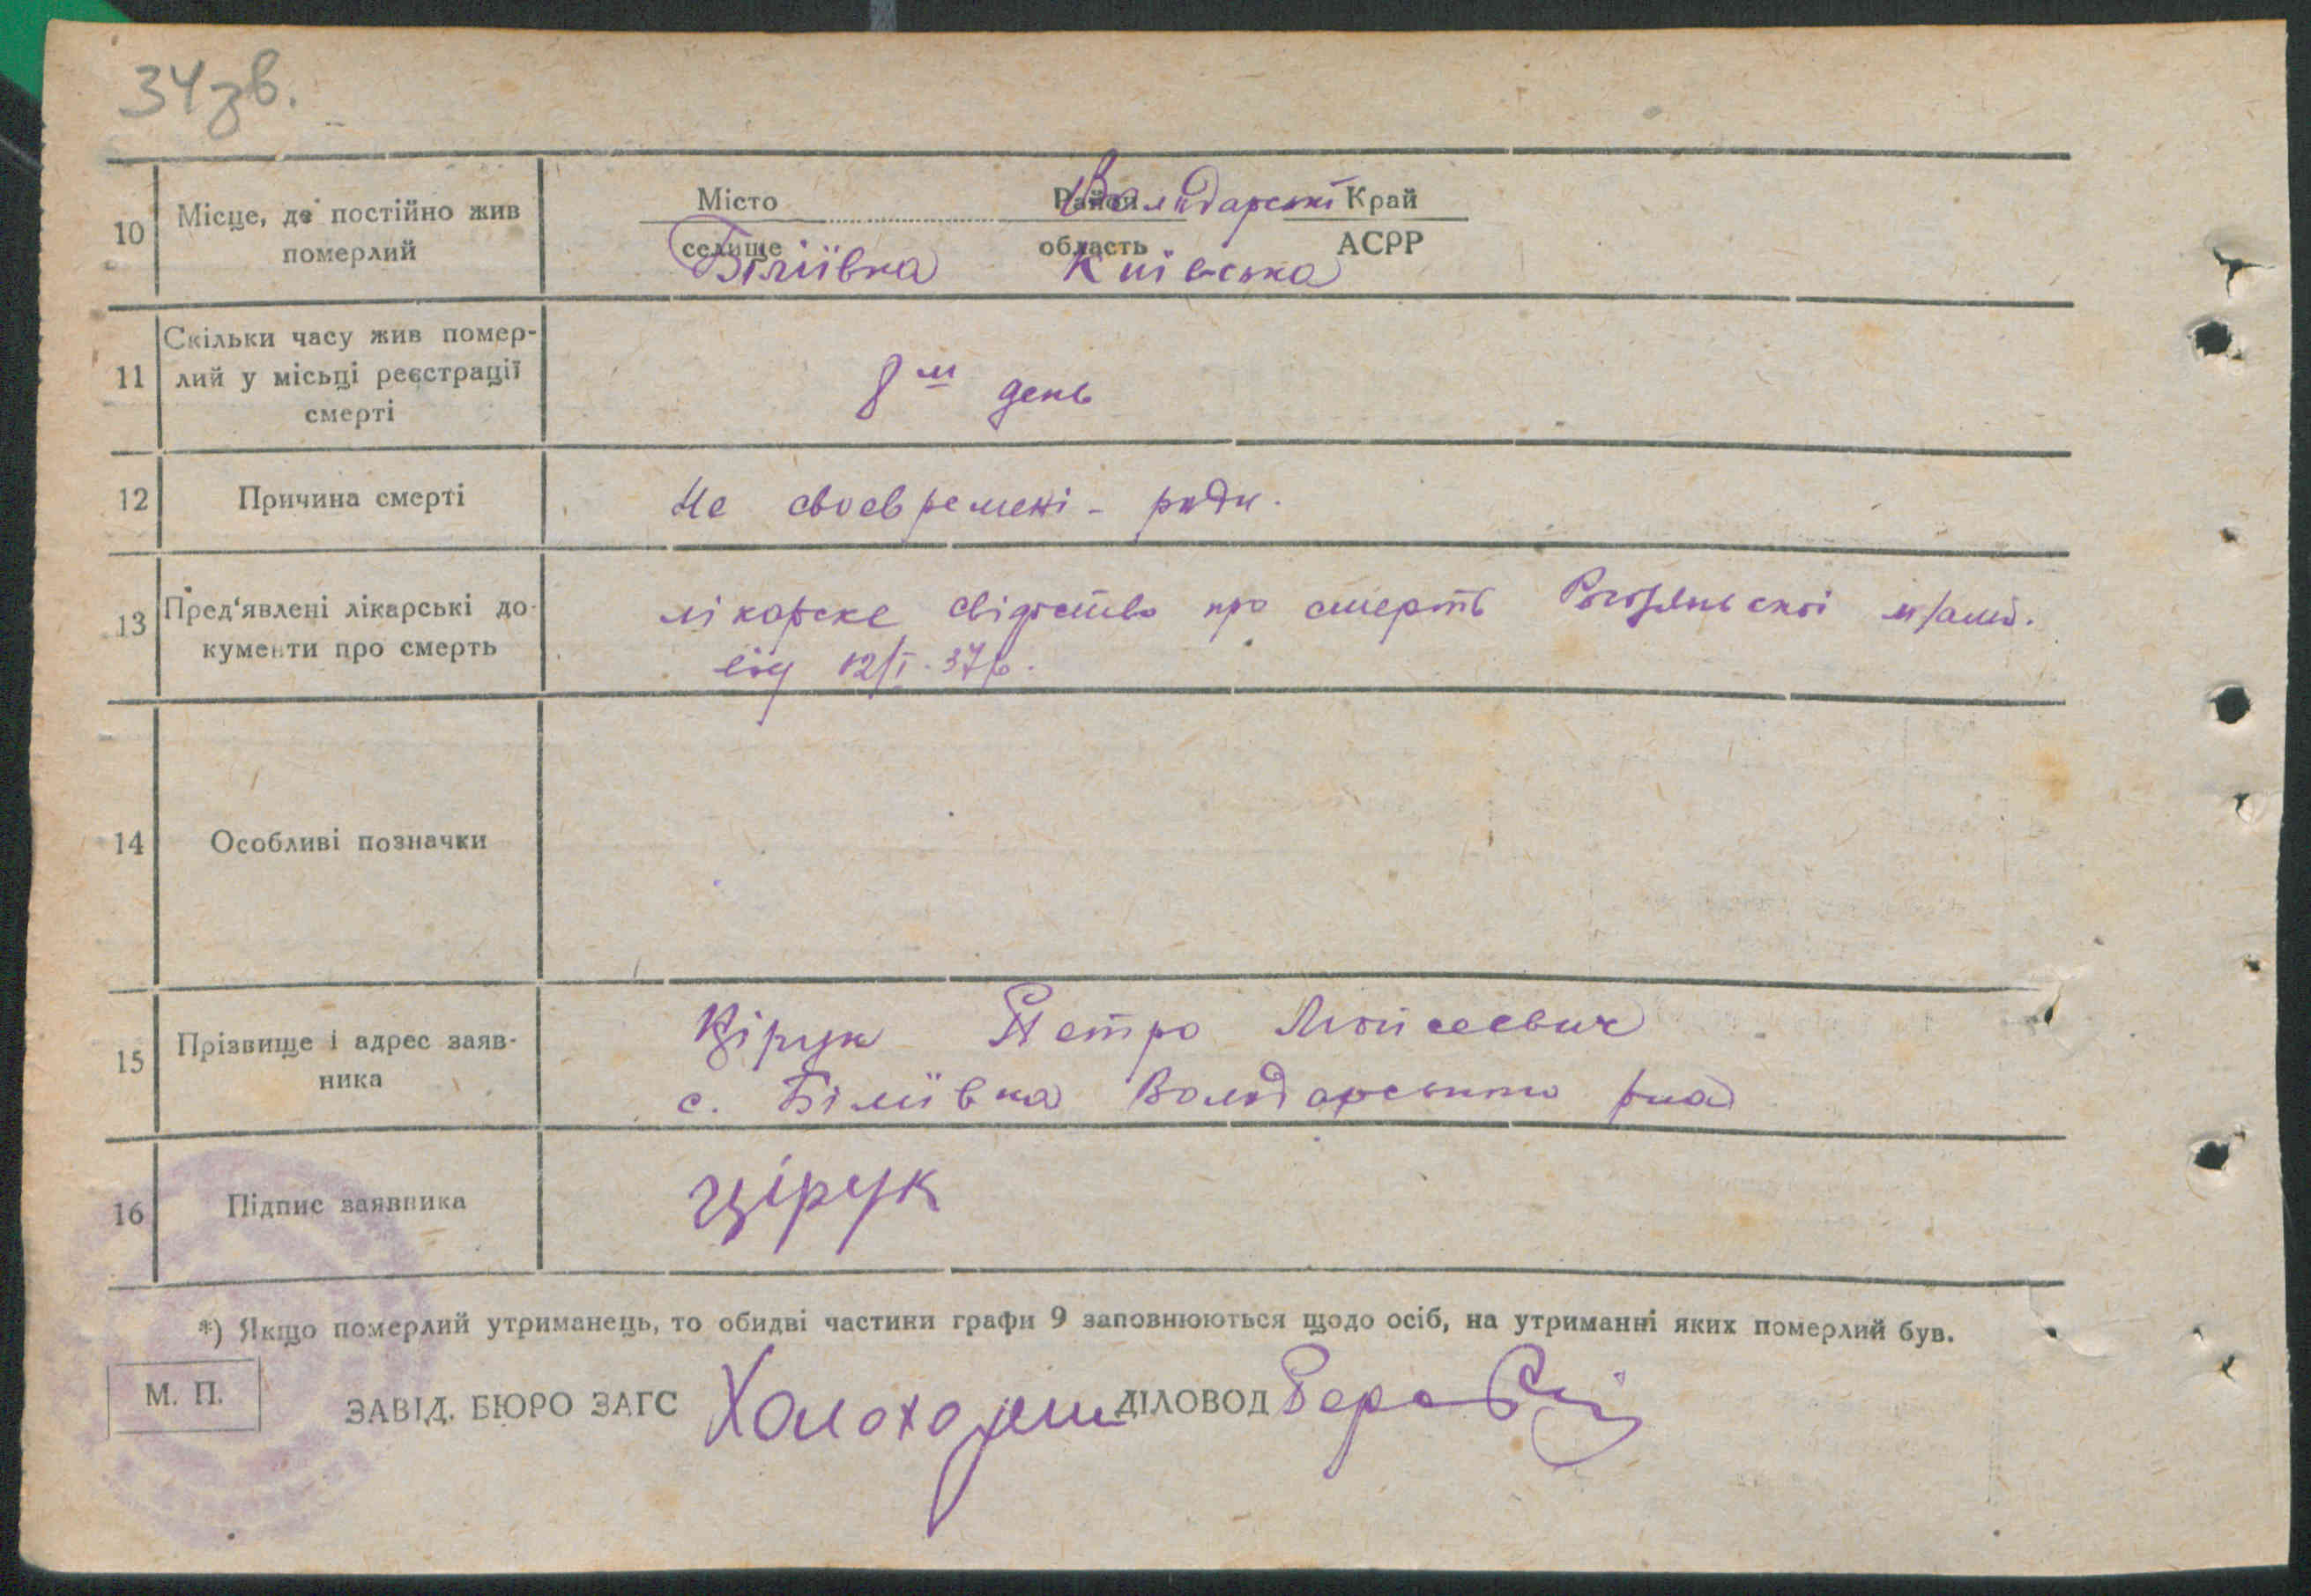 34 зв.
10 Місце, де постійно жив померлий
Місто Район Володарський Край
селище область АСРР
Біліївка Київська
11 Скільки часу жив померлий у місьці реєстрації смерті
8 м день
12 Причина смерті
Не своєвремені - роди.
13 Пред'явлені лікарські документи про смерть
лікарске свідоство про смерть м/амб.
від 12/I. 37 р.
14 Особливі позначки
15 Прізвище і адрес заявника
Цірук Петро Мойсеевич
с. Біліївка Володарського р-на
16 Підпис заявника
Цірук
*) Якщо померлий утриманець, то обидві частини графи 9 заповнюються щодо осіб, на утриманні яких померлий був.
М. П.
ЗАВІД. БЮРО ЗАГС ДІЛОВОД